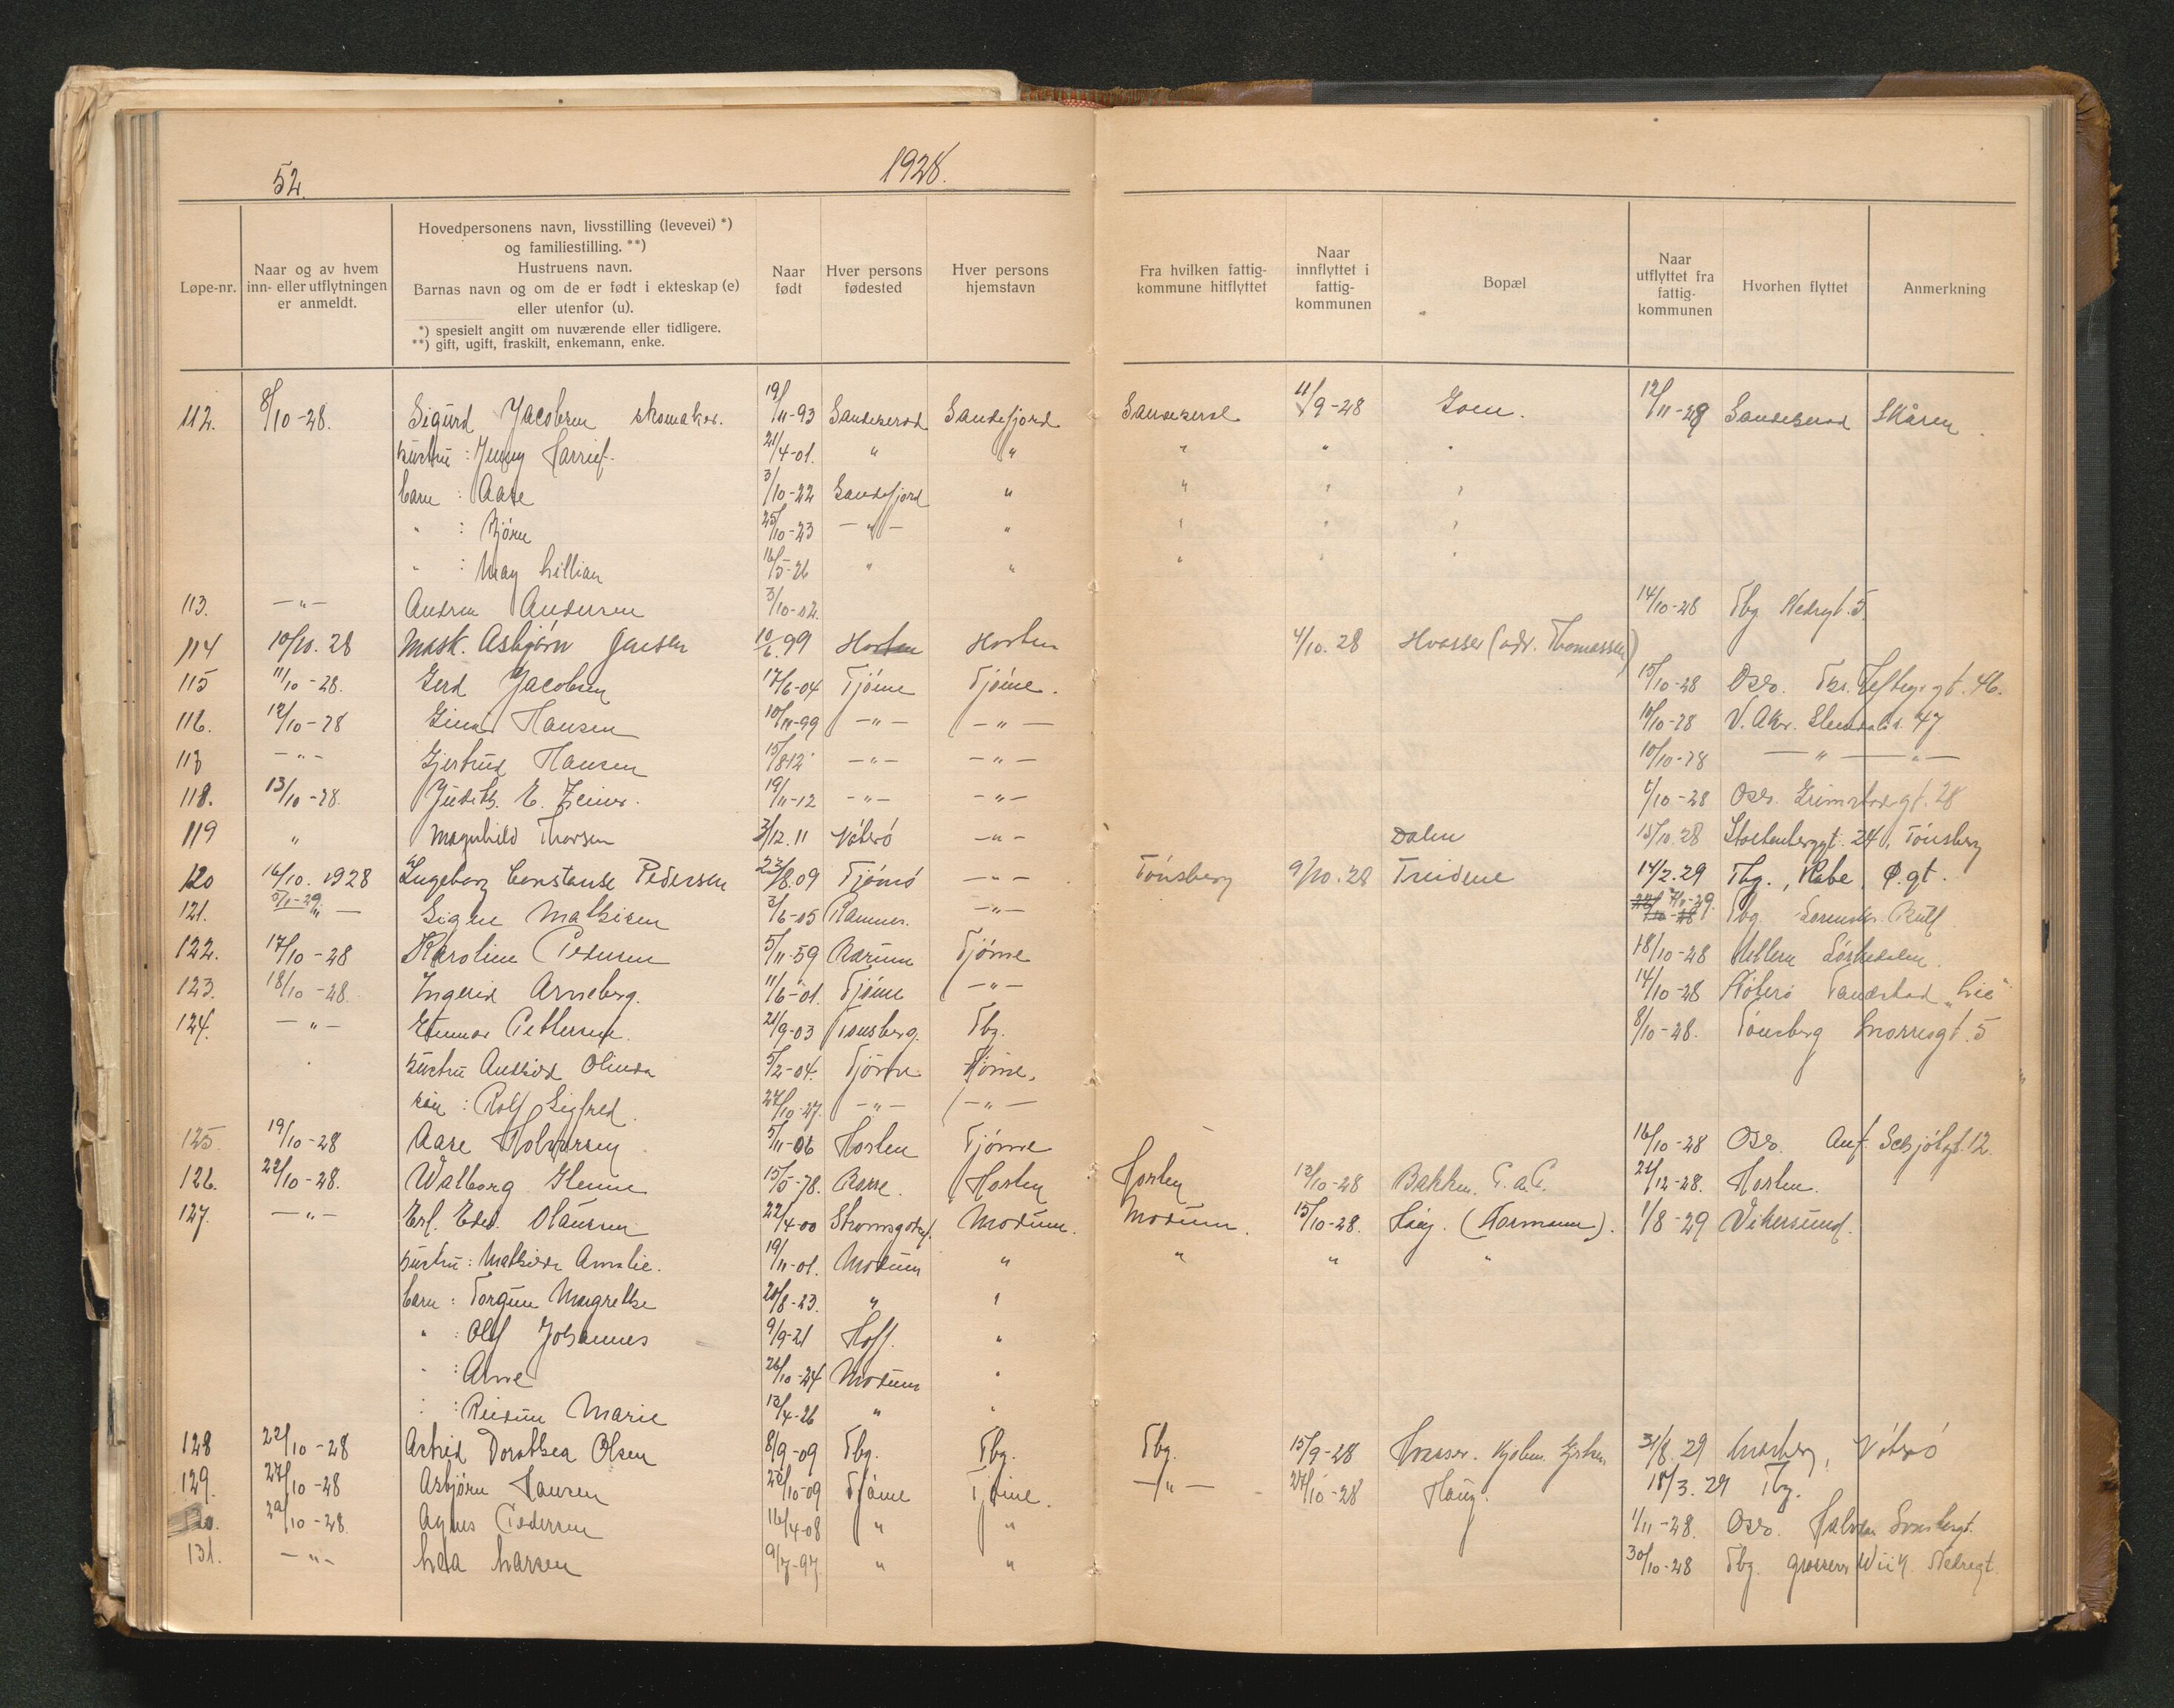 52.
1928.
Løpe-nr.
Naar og av hvem
inn- eller utflytningen
er anmeldt.
Hovedpersonens navn, livsstilling (levevei) *)
og familiestilling. **)
Hustruens navn.
Barnas navn og om de er født i ekteskap (e)
eller utenfor (u).
*) spesielt angitt om nuværende eller tidligere.
**) gift, ugift, fraskilt, enkemann, enke.
Naar
født
Hver persons
fødested
Hver persons
hjemstavn
Fra hvilken fattig-
kommune hitflyttet
Naar
innflyttet i
fattig-
kommunen
Bopæl
Naar
utflyttet fra
fattig-
kommunen
Hvorhen flyttet
Anmerkning
112. 8/10-28. Sigurd Jacobsen skomaker. 19/11-93 Sandeherad Sandefjord Sandeherad 11/9-28 12/11-28 Sandeherad Skåren
hustru : Jenny 21/4-01. " " " " "
barn : Aase 3/10-22 Sandefjord " " " "
" : Bjørn 25/10-23 - " - " " " "
" : May Lillian 16/5-26 " " " " "
113. - " - Andrea Andersen 3/10-02. 14/10-28 Tbg Nedregt. 5.
114 10/10. 28 Mask. Asbjørn Jensen 10/6.99 Horten Horten 4/10. 28 Hvasser (adr. Thomassen)
115 11/10-28. Gerd Jacobsen 17/6-04 Tjøme Tjøme. 15/10-28 Oslo. Ths. Heftyes gt. 46.
116. 12/10-28 Hansen 10/11-99 - " - - " - 10/10-28 V. Aker. 47
117 - " - Gjertrud Hansen 15/8-12 - " - - " - 10/10-28 - " - " -
118. 13/10-28. Judith E. 19/11-12 - " - - " - /10-28 Oslo. Grimstadgt. 28
119 " Magnhild Thorsen 3/12. 11 Nøterø - " - Dalen 15/10.28 Stoltenberggt. 24, Tønsberg
120 16/10. 1928 Ingeborg Constanse Pedersen 23/8.09 Tjømø - " - Tønsberg 9/10.28 Treidene 14/2.29 Tbg., Ø.gt.
121. 5/11-29 " - Signe Mathisen 3/6-05 Ramnes. - " - 7/11-29. Tbg.
122. 17/10-28 Karoline Pedersen 5/11-59 Bærum Tjøme 18/10-28 Sørkedalen.
123. 18/10-28. Ingerid Arneberg. 11/6-01. Tjøme - " - 14/10-28 Nøterø
124. - " - Gunnar Pettersen. 21/9-03 Tønsberg. Tbg. 8/10-28. Tønsberg Snorresgt. 5
hustru Olinda 5/2-04. Tjøme Tjøme.
søn : Rolf Sigfred. 24/10-27. - " - - " -
125. 19/10-28 Aase Halvorsen 5/11-06 Horten Tjøme 16/10-28 Oslo. Schjøthsgt. 12.
126. 22/10-28. Walborg Glenne 15/5-78. Borre. Horten Horten 13/10-28 Bakken. 21/12-28. Horten.
127. - " - Erl. Edv. Olausen 22/4-00 Strømsgodset. Modum. Modum. 15/10-28. Haug. 1/8-29 Vikersund.
hustru : Mathilde Amalie. 19/11-01. Modum " " " "
barn : Torgun Margrethe 20/8-23. " "
" : Olaf Johannes 9/9-21 Hoff. "
" : Arne 26/10-24 Modum "
: : Reidun Marie 13/4-26 " "
128 22/10-28 Astrid Dorothea Olsen 8/9-09 Tbg. Tbg. Tbg. 15/9-28 Hvasser. 31/8. 29 Nøterø
129. 27/10-28 Asbjørn Hansen 28/10-09 Tjøme Tjøme. - " - 27/10-28 Haug. 18/3. 29 Tbg.
130. 29/10-28. Agnes Pedersen 16/4-08 " " 1/11-28. Oslo.
131. - " - Laa Larsen 9/7-97 " " 30/10-28 Tbg. grosserer Wiik. Nedregt.